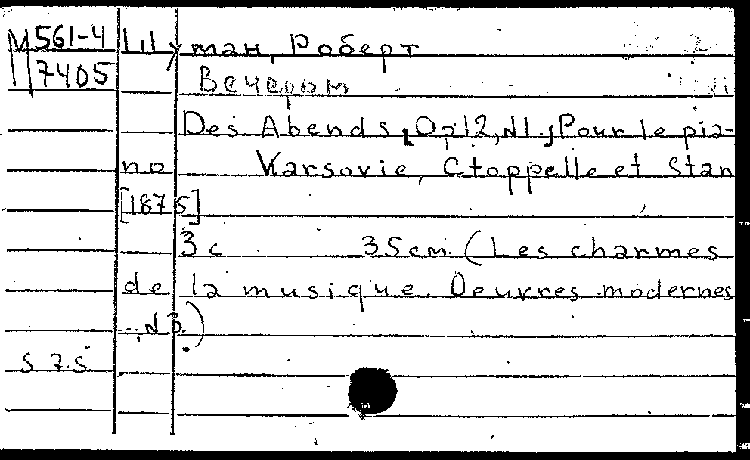 М 561-4 Шуман, Роберт
7405 Вечером
Des Abends [Op 12, N1.] Pour le pia-
no Varsovie, Ctoppelle et Stan
[1875]
3 c 35 cm. (Les charmes
de la musique. Oeuvres modernes
.., N 3.)
S 75